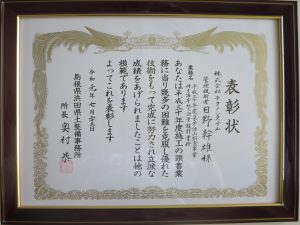 表彰状
株式会社
管理技術者
日野幹雄様
業務名
あなたは平成三十年度施工の頭書業
務に当り幾多の困難を克服し優れた
技術をもって完成に努力され立派な
成績をあげられましたことは他の
模範であります
よってこれを表彰します
令和元年七月
島根県浜田県土整備事務所
所長 奥村